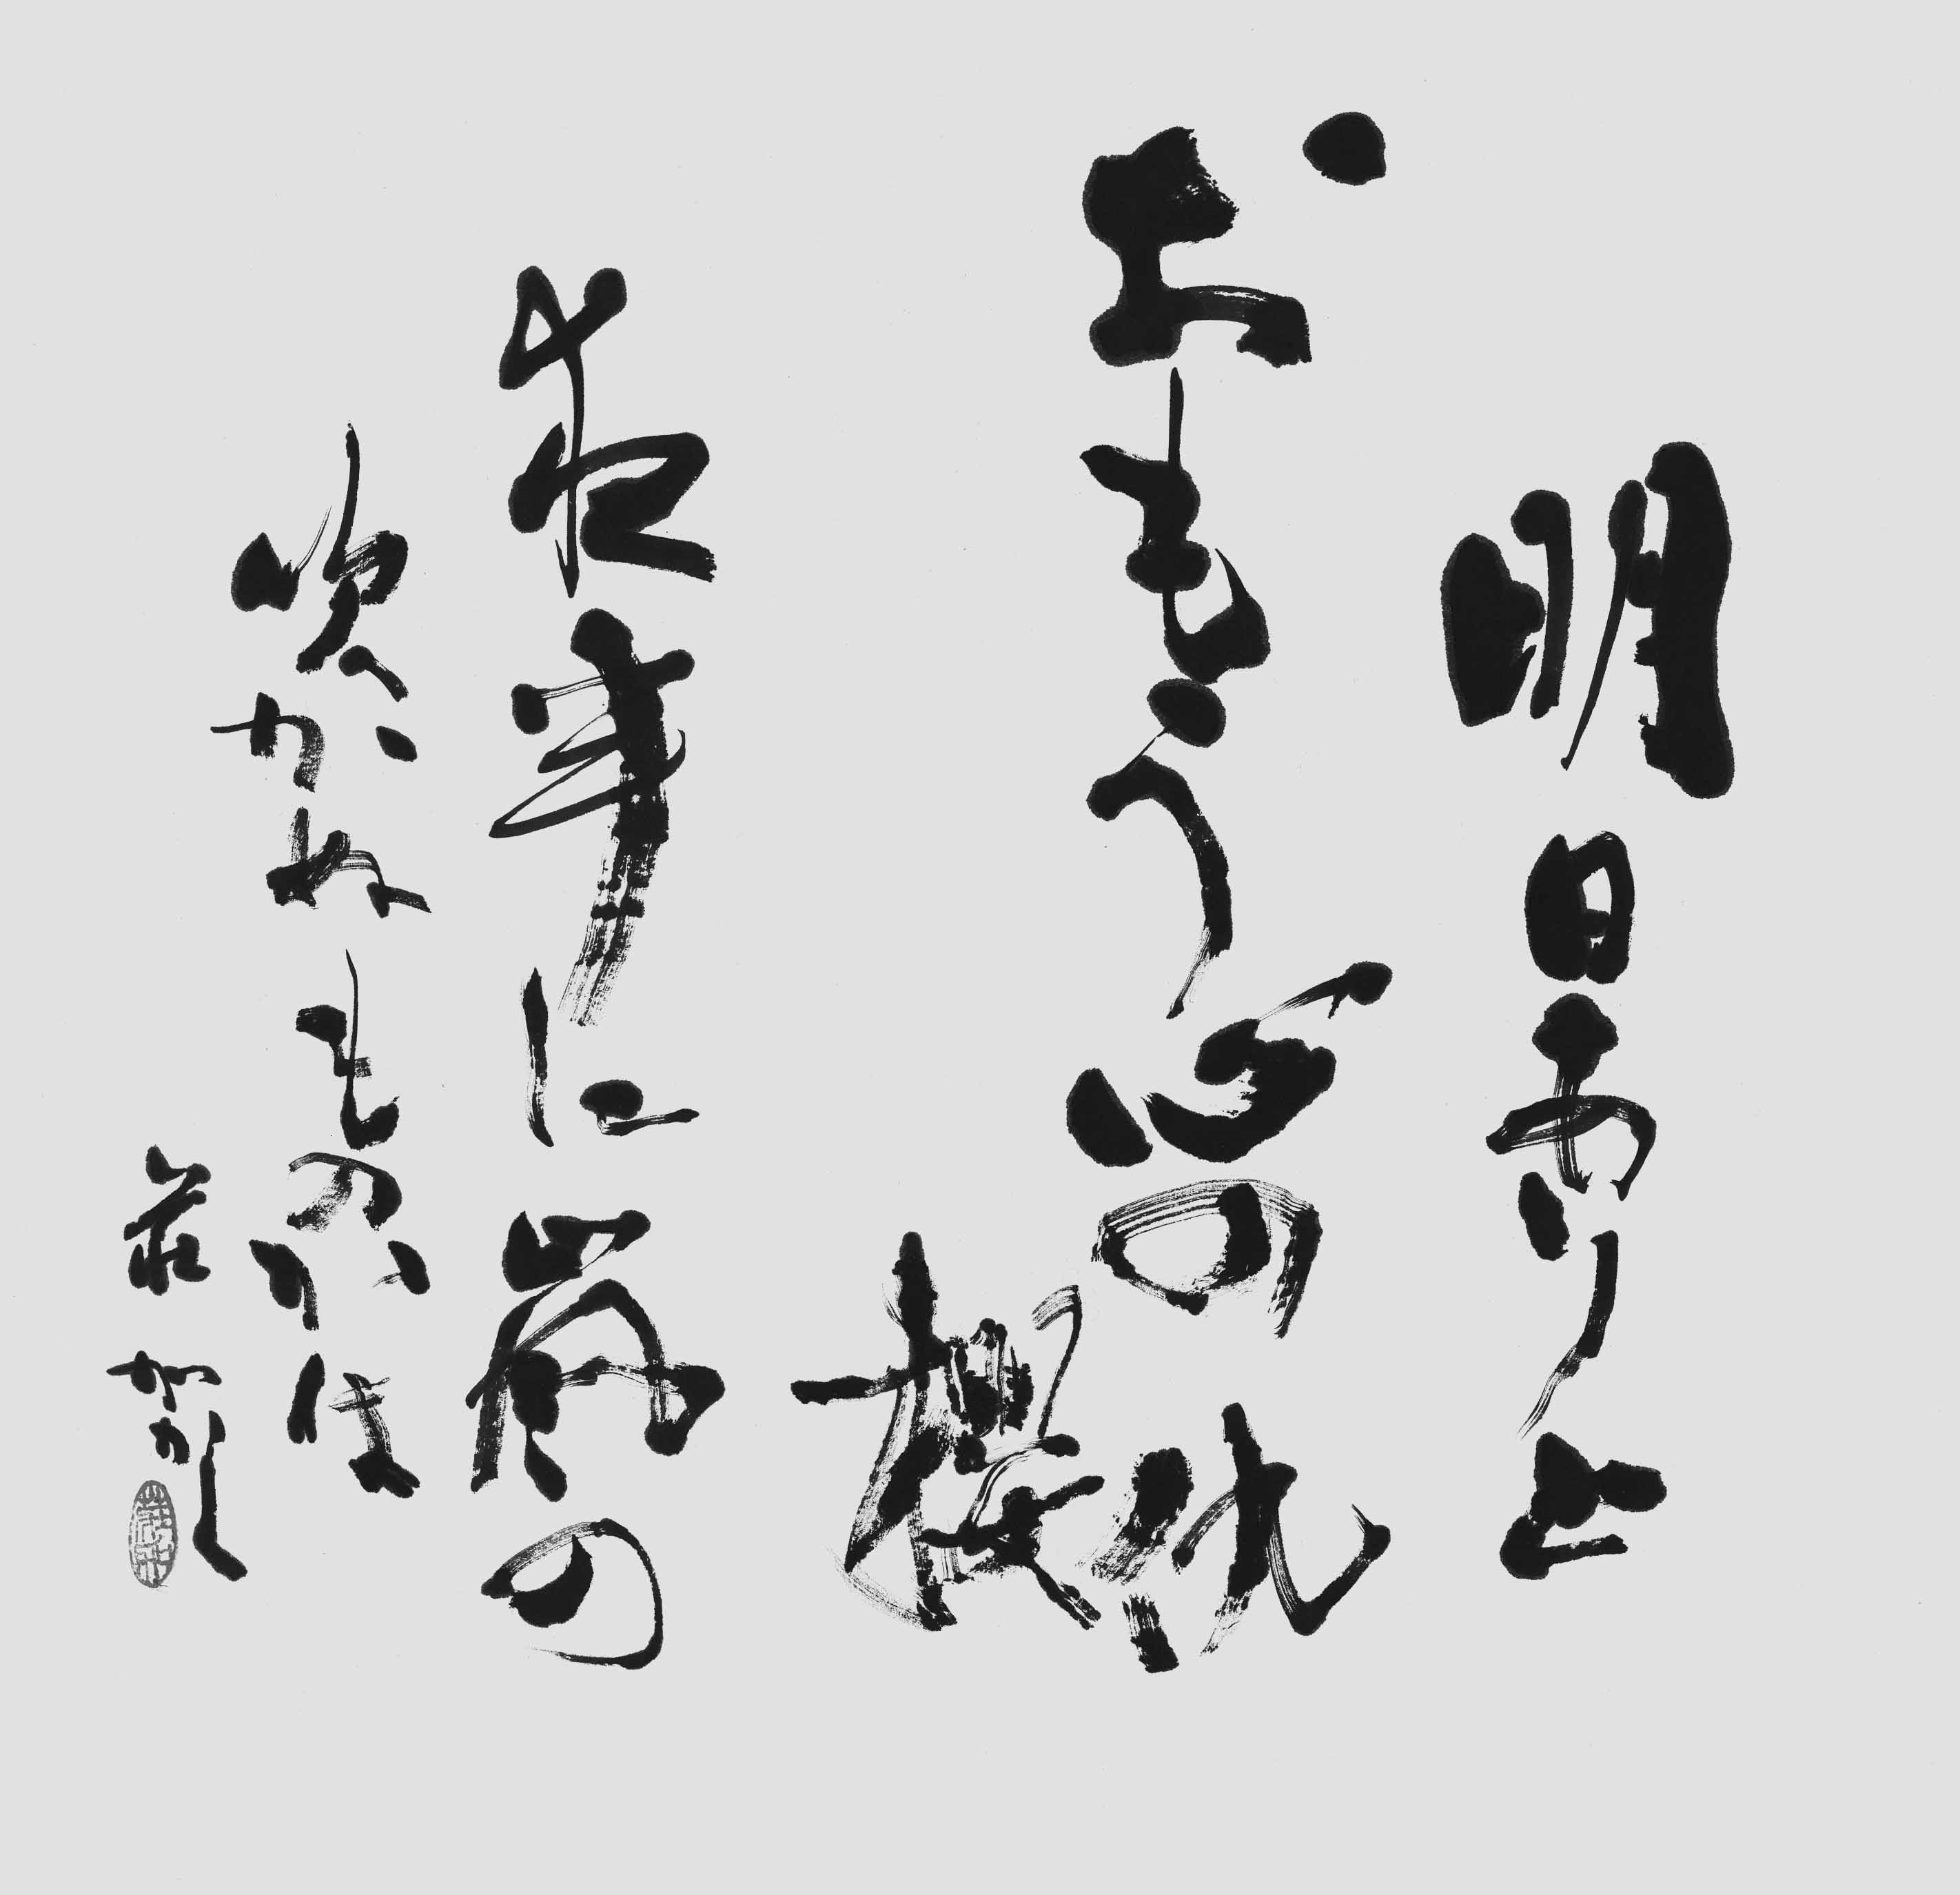 明日ありと
おもう心の仇
櫻
夜半に嵐の
吹かぬものかは